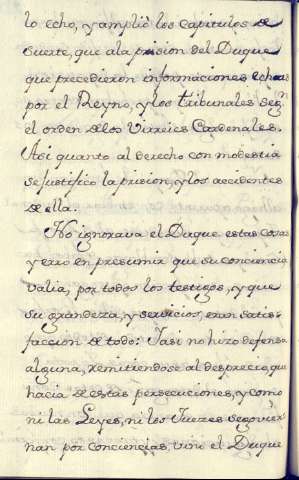 lo echo, y amplió los capitulos de
suerte, que ala prision del Duque
que precedieron informaciones echas
por el Reyno, y los tribunales seg.n
el orden delos Virreies Cardenales.
Asi quanto al derecho con modestia
se justifico la prision, y los accidentes
de ella.
No ignorava el Duque estas cosas
y erro en presumir que su conciencia
valia, por todos los testigos, y que
su grandeza, y servicios, eran satis-
faccion de todo: Iasi no hizo defensa
alguna, remitiendose al desprecio, que
hacia de estas persecuciones, y como
ni las Leyes, ni los Juezes se govier-
nan por conciencias, vino el Duque